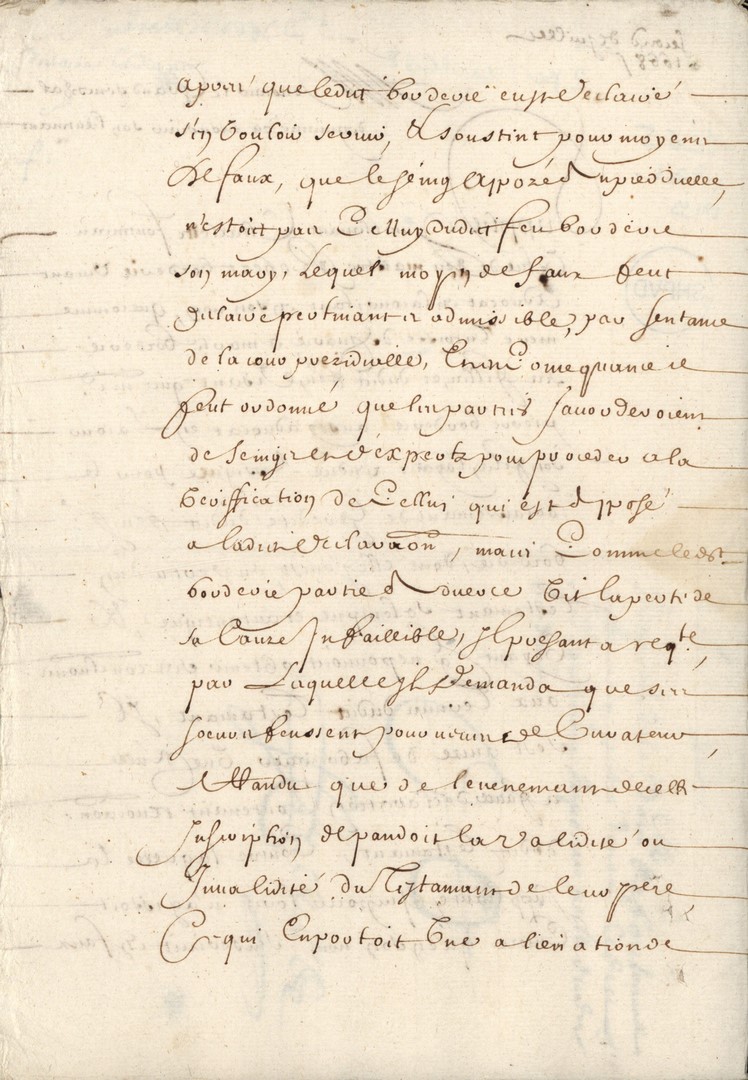 apres que ledict borderie eust declairé
s'en vouloir servir, et soustint pour moyens
de faux, que le seing apposé au pied d'icelle,
n'estoict pas celluy dudict feu borderie
son mary, lequel moyen de faux feut
declairé pertinant et admissible, par sentance
de la cour presidialle, en consequance
feut ordonné que les parties s'accorderoient
de seings et d'expertz pour proceder a la
veriffication de celluy qui est apposé
a ladicte declaration, mais comme led.
borderie partie adverce vit la perte de
sa cauze infaillible, il presanta reqte,
par laquelle il demanda que ses
soeurs feussent pourveues de curateur,
attandu que de l'evenemant de celle
inscription depandoit la validité ou
invalidité du testamant de leur père
ce qui emportoit une alienation de